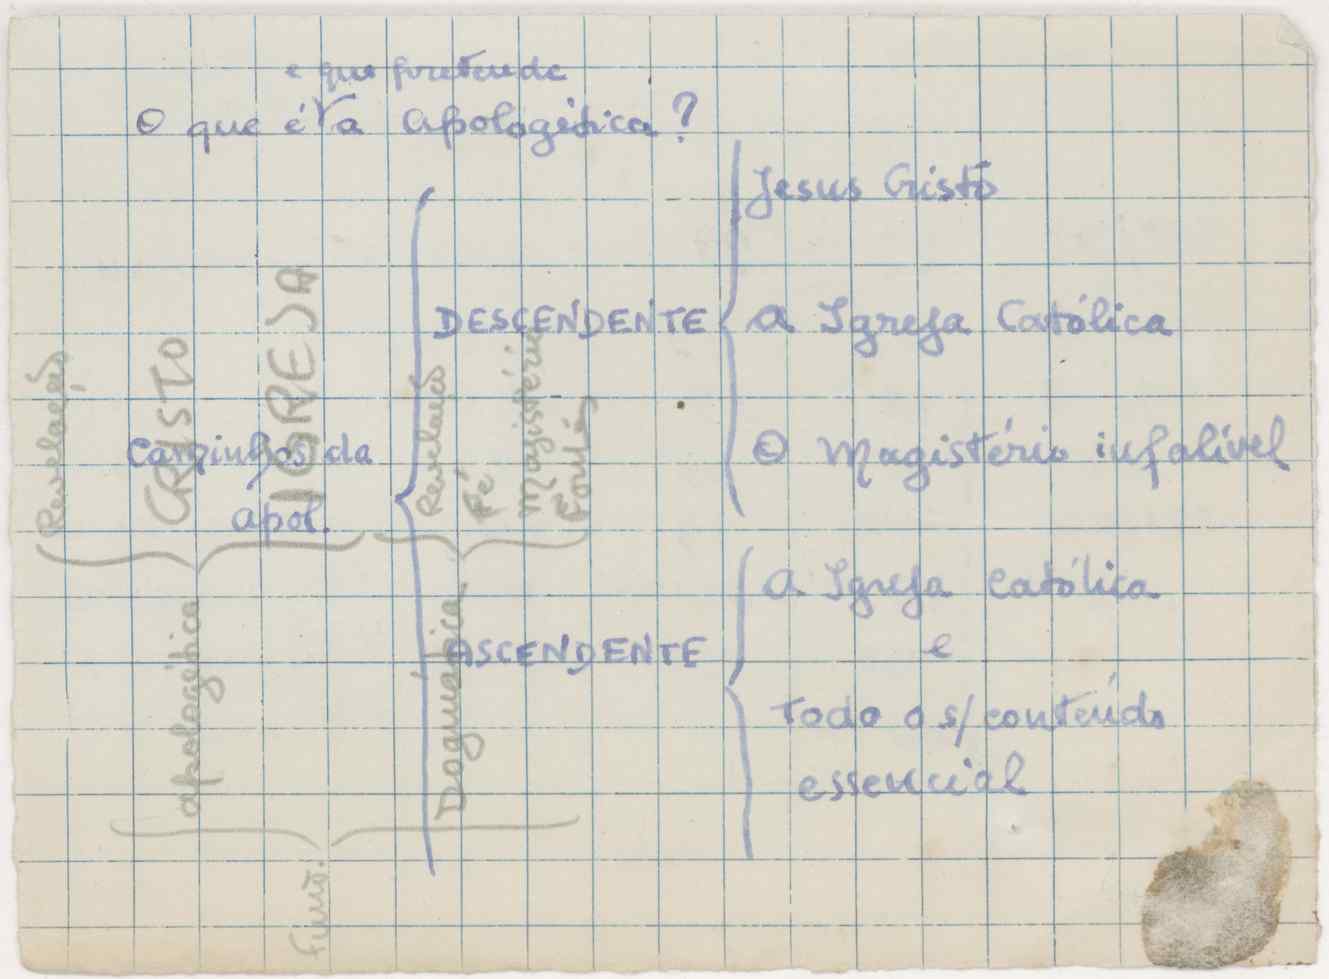 e que pretende
O que é a Apologética?
Caminhos da
apol.
DESCENDENTE
Jesus Cristo
A Igreja Católica
O Magistério infalível
ASCENDENTE
A Igreja Católica
e
todo o s/ conteúdo
essencial
apologética
Revelação
CRISTO
IGREJA
Dogmática
Revelação
Fé
Magistério